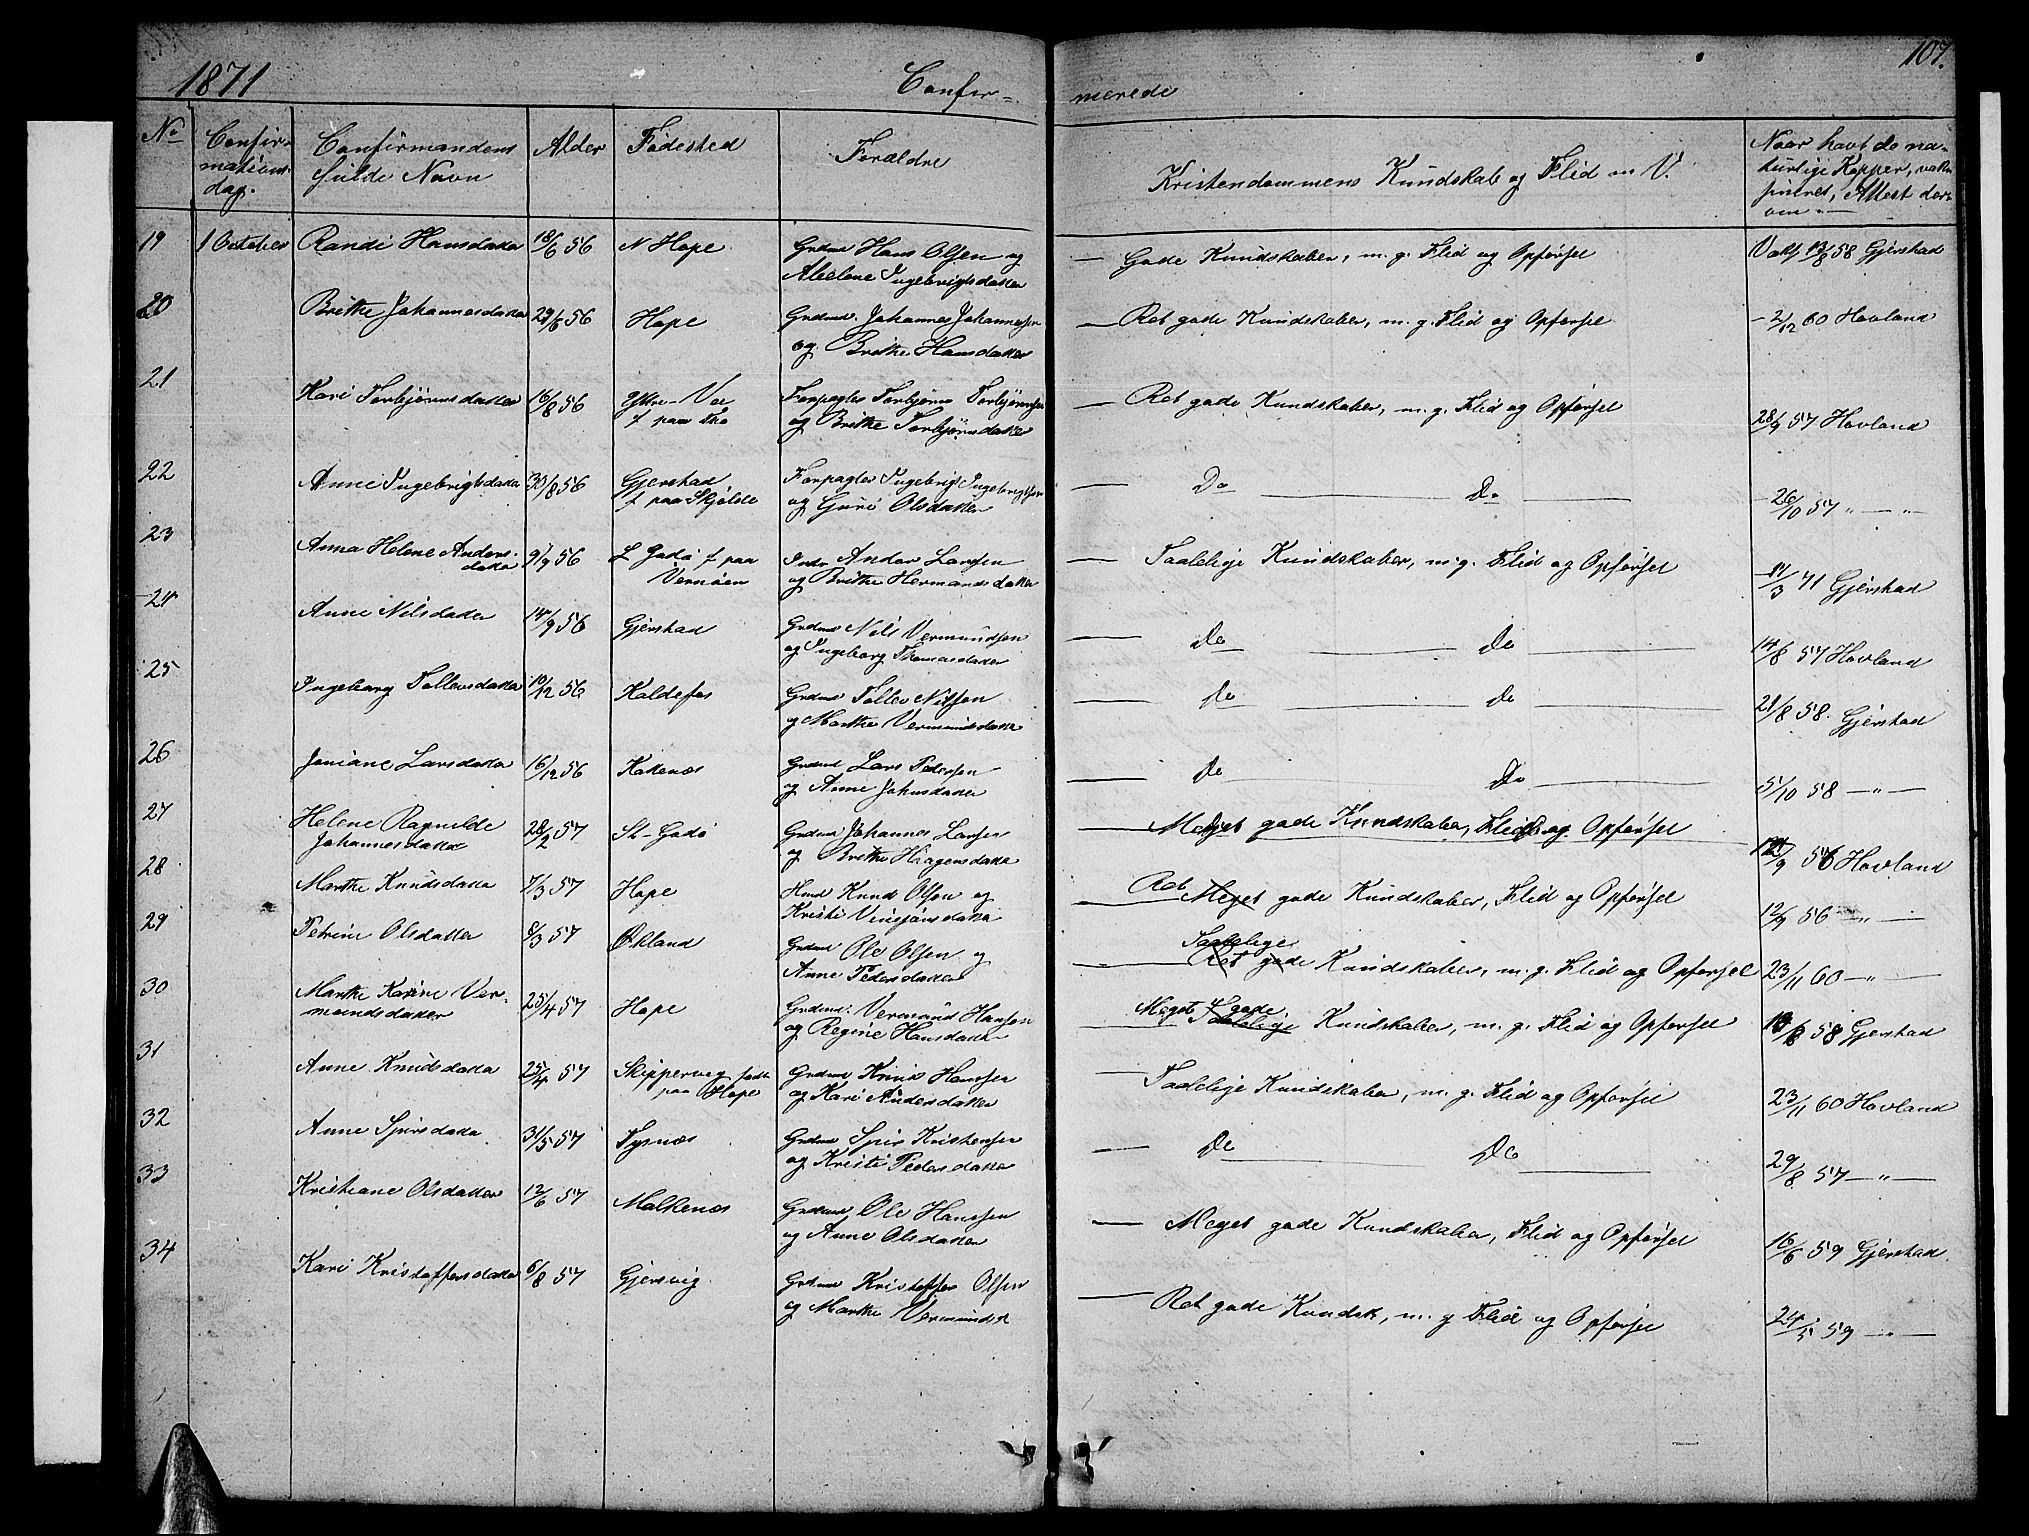 1871 Confir-
merede 107.
No Confir-mations dag. Confirmandens fulde Navn Alder Fødested Forældre Kristendommens Kundskab og Flid m V. Naar havt de naturlige Kopper, vaksineret, Attest derom
19 1 October Randi Hansdatter 18/6 56 N Hope Grdmd Hans Olsen og Abelone Ingebrigtsdatter — Gode Kundskaber, m. g. Flid og Opførsel Vakf 13/8 58 Gjerstad
20 Brithe Johannesdatter 29/6 56 Hope Grdmd. Johannes Johannessen og Brithe Hansdatter — Ret gode Kundskaber, m. g. Flid og Opførsel - 2/12 60 Hovland
21 Kari Torbjørnsdatter 16/8 56 Forpagter Torbjørn Torbjørnsen og Brithe Torbjørnsdatter — Ret gode Kundskaber, m. g. Flid og Opførsel 28/9 57 Hovland
22 Anne Ingebrigtsdatter 30/8 56 Gjerstad f paa Skjelde Forpagter Ingebrigt Ingebrigtsen og Guri Olsdatter — Do — Do — 26/10 57 " — "
23 Anna Helene Andersdatter 9/9 56 L Godø f paa Vernøen Indr Andar Larsen og Brithe Hermandsdatter — Taalelige Kundskaber, m. g. Flid og Opførsel 14/3 71 Gjerstad
24 Anne Nilsdatter 14/9 56 Gjerstad Grdmd Nils Vermundsen og Ingeborg Thomasdatter — Do — Do — 14/8 57 Hovland
25 Ingeborg Tollevsdatter 10/12 56 Kaldefos Grdmd Tollev Nilsen og Marthe Vermundsdatter — Do — Do — 21/8 58. Gjerstad
26 Joniane Larsdatter 16/12 56 Kattenæs Grdmd Lars Pedersen og Anne Johnsdatter — Do — Do — 5/10 58 — " —
27 Helene Ragnilde Johannesdatter 28/2 57 St- Godø Grdmd Johannes Larsen og Brithe Haagensdatter — Meget gode Kundskaber, Flid og Opførsel /9 56 Hovland
28 Marthe Knudsdatter 7/3 57 Hope Husd Knud Olsen og Kristi Vinsjansdatter — Ret Meget gode Kundskaber, Flid og Opførsel 12/9 56 — " —
29 Petrine Olsdatter 8/3 57 Økland Grdmd Ole Olsen og Anne Pedersdatter — Taalelige Ret gode Kundskaber, m. g. Flid og Opførsel 23/11 60 — " —
30 Marthe Karine Vermundsdatter 25/4 57 Hope Grdmd. Vermund Hansen og Regine Hansdatter — Meget gode Taalelige Kundskaber, m. g. Flid og Opførsel 18/8 58 Gjerstad
31 Anne Knudsdatter 25/4 57 Skippervig født paa Hope Grdmd Knud Hansen og Kari Andersdatter — Taalelige Kundskaber, m. g. Flid og Opførsel 23/11 60 Hovland
32 Anne Spirsdatter 31/5 57 Tysnæs Grdmd Spir Kristensen og Kristi Pedersdatter — Do — Do — 29/8 57 — " —
33 Kristiane Olsdatter 12/6 57 Malkenæs Grdmd Ole Hanssen og Anne Olsdatter — Meget gode Kundskaber, Flid og Opførsel 16/6 59 Gjerstad
34 Kari Kristoffersdatter 6/8 57 Gjersvig Grdmd Kristoffer Olsen og Marthe Vermundsd — Ret gode Kundsk, m. g Flid og Opførsel 24/5 59 — " —